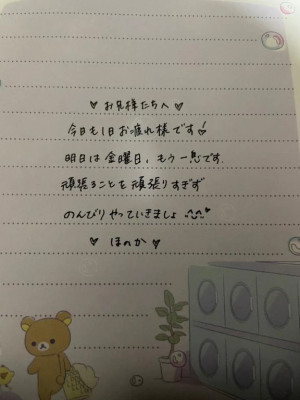 ♥ お兄様たちへ ♥
今日も1日お疲れ様です!
明日は金曜日、もう一息です.
頑張ることを頑張りすぎず
のんびりやっていきましょ ^^♥
♥ ほのか ♥